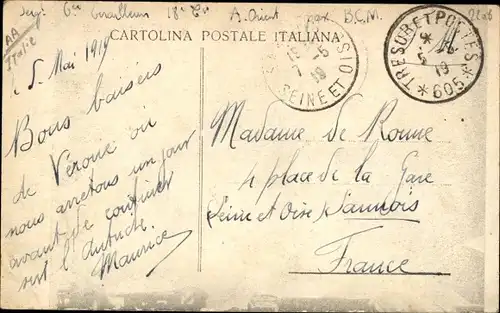 18e A. Orient par B.C.M.
AA
Italie
CARTOLINA POSTALE ITALIANA
le 5 Mai 1919
Bons baisers
de Vérone où
nous arretons un jour
avant de continuer
sur l'Autriche
Maurice
SEINE ET OISE
5
19
TRESOR ET POSTES
5
19
* 605 *
Madame de Roune
4 place de la Gare
Seine et Oise Sannois
France